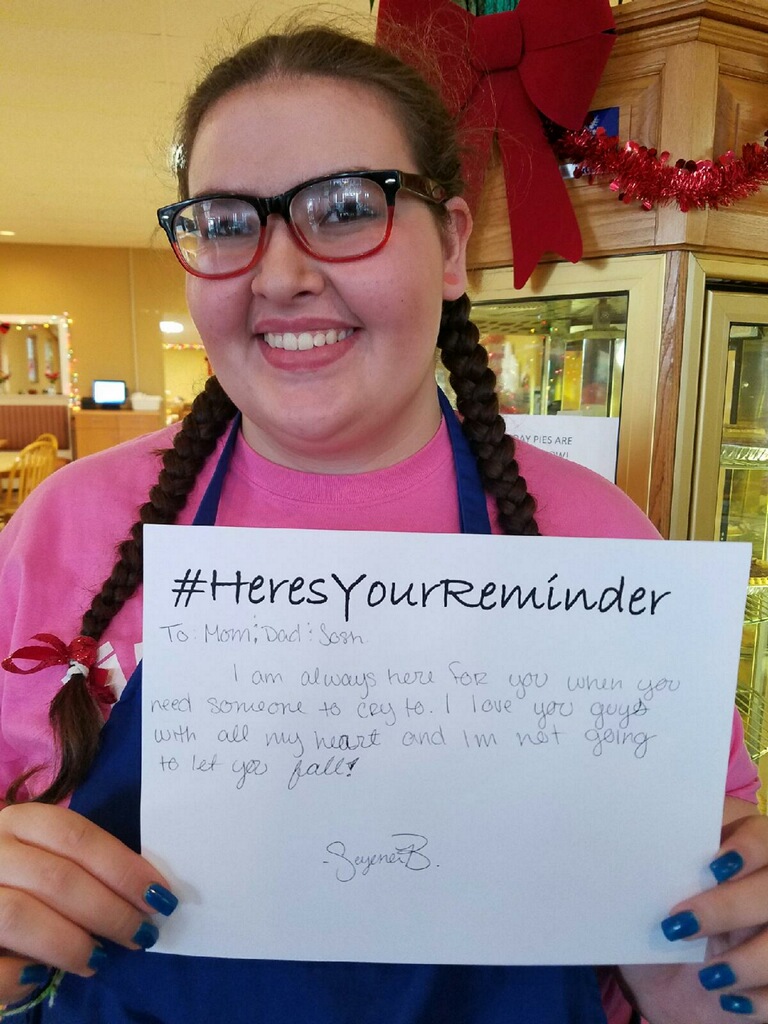 #HeresYourReminder
To: Mom; Dad; Josh
I am always here for you when you
need someone to cry to. I love you guys
with all my heart and Im not going
to let you fall!
B.
DAY PIES ARE